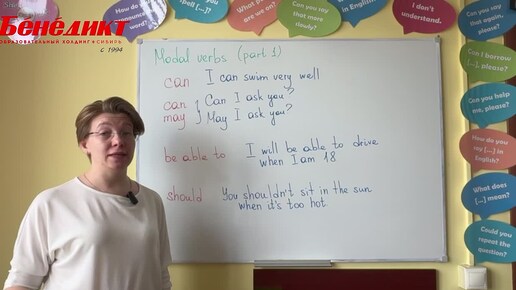 Бенедикт
ОБРАЗОВАТЕЛЬНЫЙ ХОЛДИНГ СИБИРЬ
с 1994
Modal verbs (part 1)
can I can swim very well
can Can I ask you?
may May I ask you?
be able to I will be able to drive
when I am 18
should You shouldn't sit in the sun
when it's too hot
spell [...],
please?
Can you
say that
more slowly?
in English?
I don't
understand.
Can you
say that
again, please?
Can I borrow
[...], please?
Can you
help me,
please?
How do
you say [...] in
English?
What does
[...] mean?
Could you
repeat the
question?